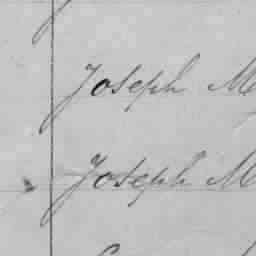 Joseph M
Joseph M